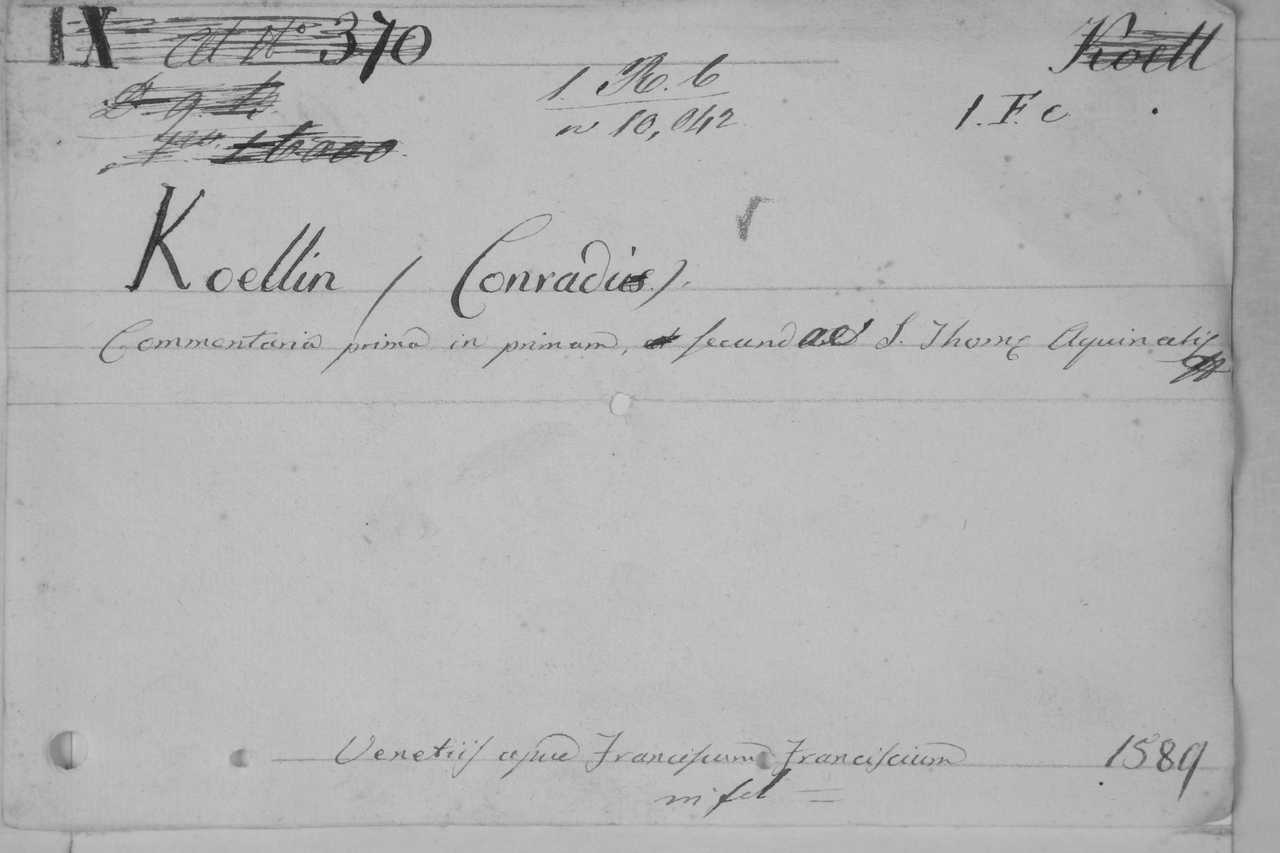 IX 370 Koell
1. R. b
n 10,042 1. F. c
Koellin / Conradus).
Commentaria prima in primam, secundae S. Thomę Aquinatis
Venetiis apud Franciscum Franciscium 1589
in fol =